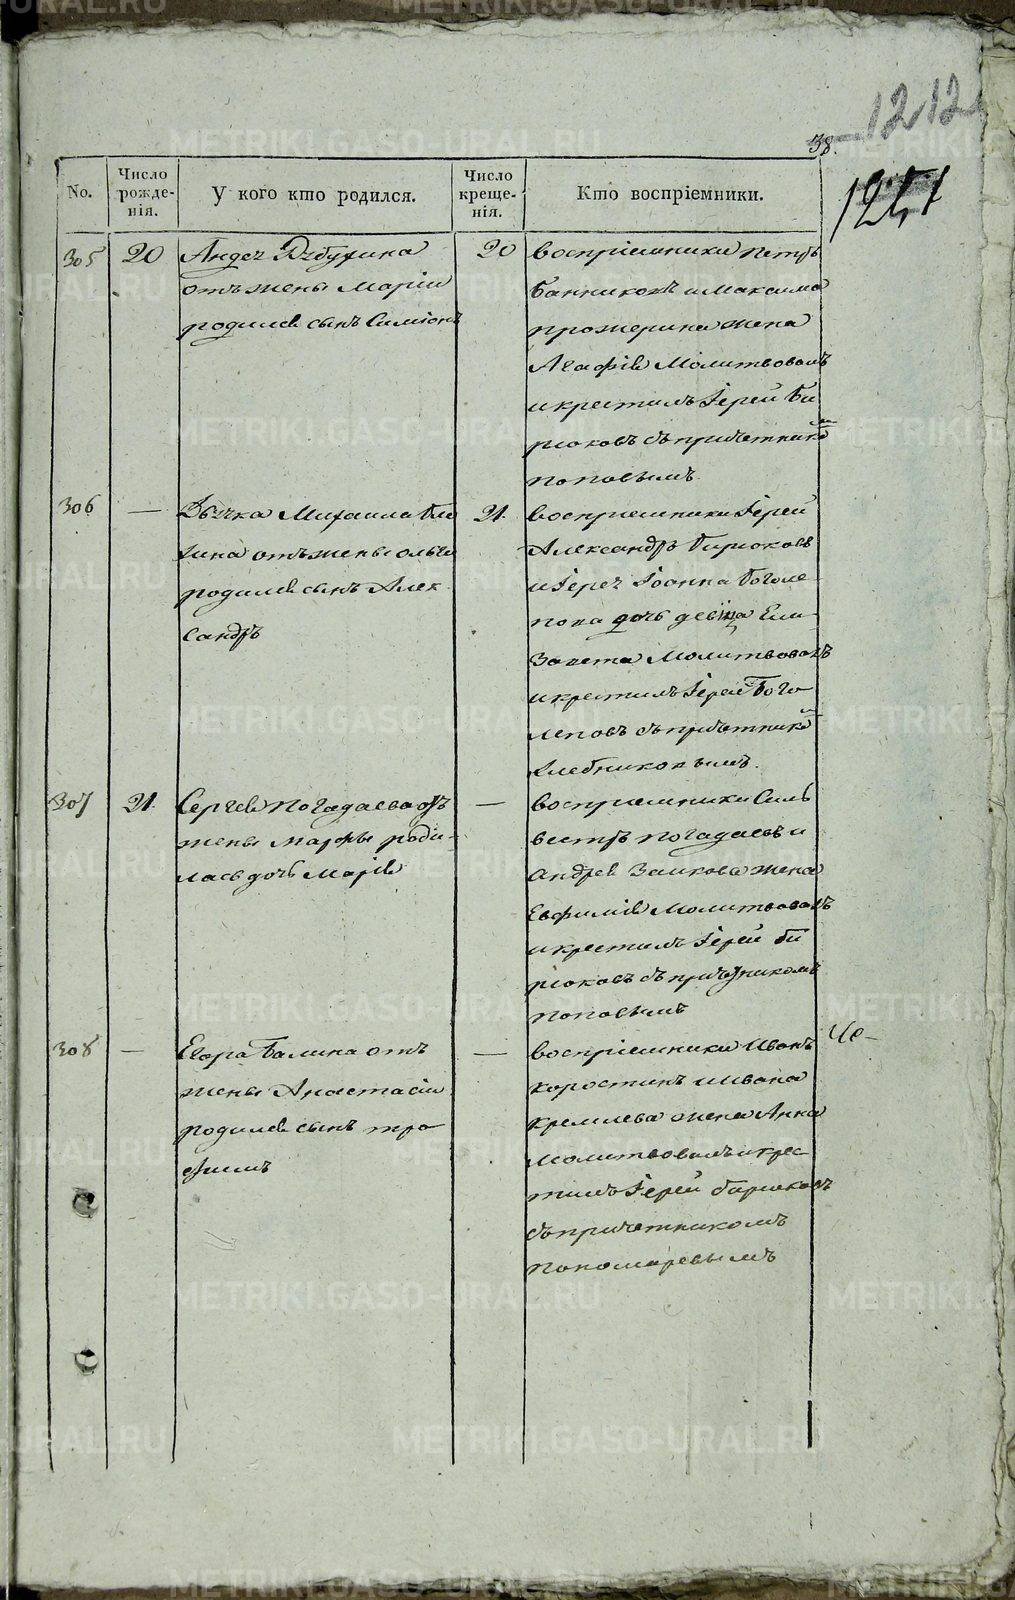 1212
38.
No.
Число рожденія.
У кого кто родился.
Число крещенія.
Кто воспріемники.
305
20
отъ жены Маріи
родился сынъ Симіонъ
20
воспріемники Петръ
Банниковъ и Максима
жена
Агафія Молитвовалъ
и крестилъ Іерей Би
рюковъ съ причетникомъ
Поповымъ
306
—
Михаила
отъ жены Ольги
родился сынъ Алек
сандръ
21.
воспріемники Іерей
Александръ Бирюковъ
и Іерея Іоанна Боголе
пова дочь девица Ели
завета Молитвовалъ
и крестилъ Іерей Бого
леповъ съ причетником
Хлебниковымъ.
307
21.
Сергея Погадаева отъ
жены Марфы роди-
лась дочь Марія
—
воспріемники Силь
вестръ Погадаевъ и
Андрея жена
Евфимія Молитвовалъ
и крестилъ Іерей Би
рюковъ съ причетникомъ
Поповымъ
308
—
Егора Балина отъ
жены Анастасіи
родился сынъ Тро
фимъ
—
воспріемники Иванъ
Коростинъ и Ивана
Кремлева жена Анна
Молитвовалъ и крес
тилъ Іерей Бирюковъ
съ причетникомъ
Пономаревымъ
METRIKI.GASO-URAL.RU